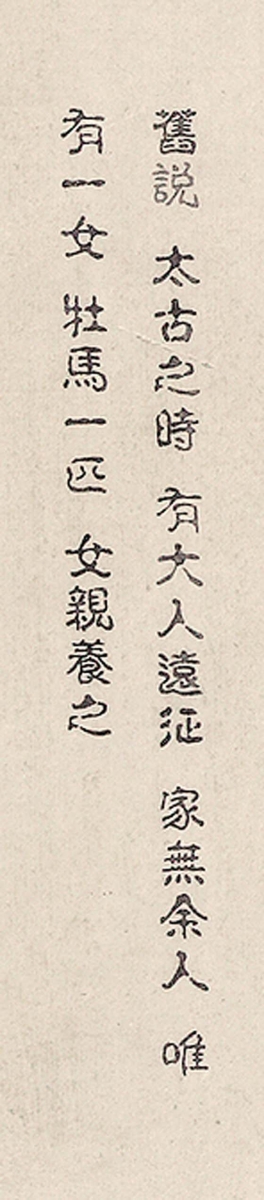 舊説 太古之時 有大人遠征 家無余人 唯
有一女 牡馬一匹 女親養之